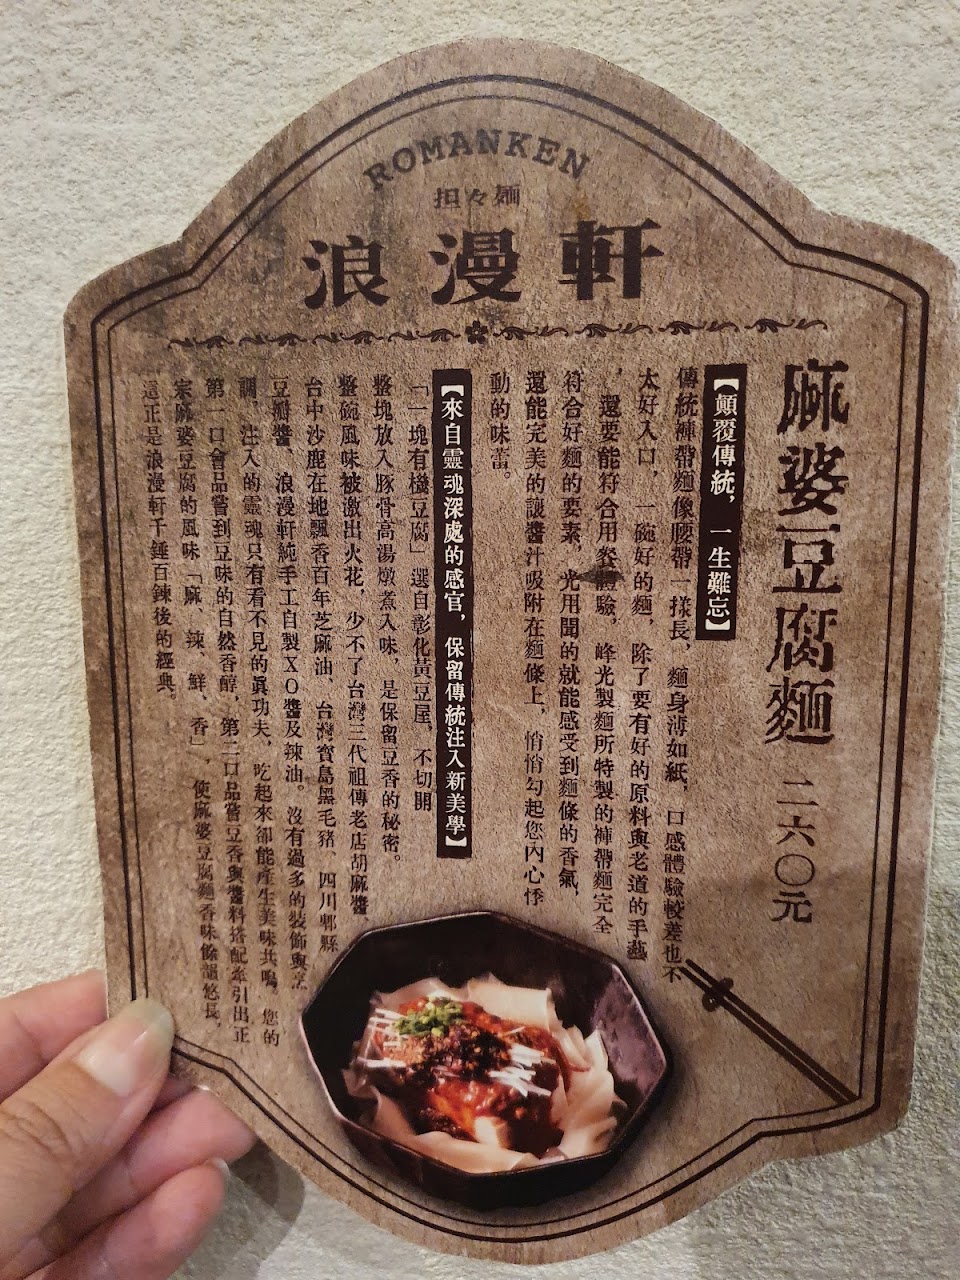 ROMANKEN
担々麺
浪漫軒
麻婆豆腐麵 二六〇元
【顛覆傳統，一生難忘】
傳統褲帶麵像腰帶一樣長，麵身薄如紙，口感體驗較差也不
太好入口，一碗好的麵，除了要有好的原料與老道的手藝
，還要能符合用餐體驗，峰光製麵所特製的褲帶麵完全
符合好麵的要素，光用聞的就能感受到麵條的香氣，
還能完美的讓醬汁吸附在麵條上，悄悄勾起您內心悸
動的味蕾。
【來自靈魂深處的感官，保留傳統注入新美學】
「一塊有機豆腐」選自彰化黃豆屋，不切開
整塊放入豚骨高湯燉煮入味，是保留豆香的秘密。
整碗風味被激出火花，少不了台灣三代祖傳老店胡麻醬、
台中沙鹿在地飄香百年芝麻油、台灣寶島黑毛豬、四川郫縣
豆瓣醬、浪漫軒純手工自製XO醬及辣油。沒有過多的裝飾與烹
調，注入的靈魂只有看不見的真功夫，吃起來卻能產生美味共鳴。您的
第一口會品嘗到豆味的自然香醇，第二口品嘗豆香與醬料搭配牽引出正
宗麻婆豆腐的風味「麻、辣、鮮、香」，使麻婆豆腐麵香味餘韻悠長，
這正是浪漫軒千錘百鍊後的經典。